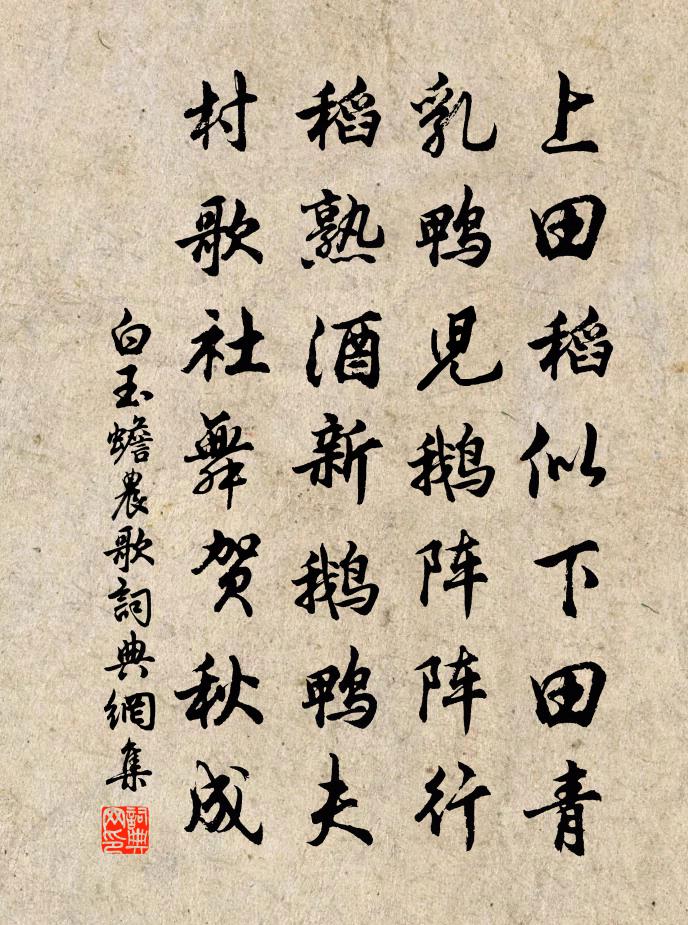 上田稻似下田青
乳鸭児鹅阵阵行
稻熟酒新鹅鸭夫
村歌社舞贺秋成
白玉蟾農歌詞典網集
詞典网印